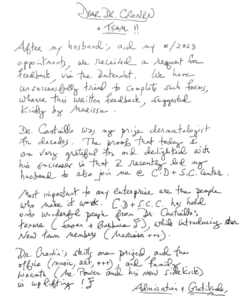 DEAR DR. CRONIN
+ TEAM !!
After my husband's and my 11/2023
appointments, we received a request for
feedback, via the Internet. We have
unsuccessfully tried to complete such forms,
where this written feedback, suggested
kindly by Marissa.
Dr. Castiello was my prize dermatologist
for decades. The proof that today I
am very grateful for and delighted with
his successor is that I recently led my
husband to also join me @ C.D + S.C. Center.
Most important to any enterprise are the people
who make it work. C.D + S.C.C. has held
onto wonderful people from Dr Castiello's
tenure ( + Barbara ), while introducing star
New team members (Marissa +++).
Dr. Cronin's skills are prized and the
office (music, art, +++) and family
warmth (Mr Power and his new sidekick)
is uplifting !!
Admiration + Gratitude,